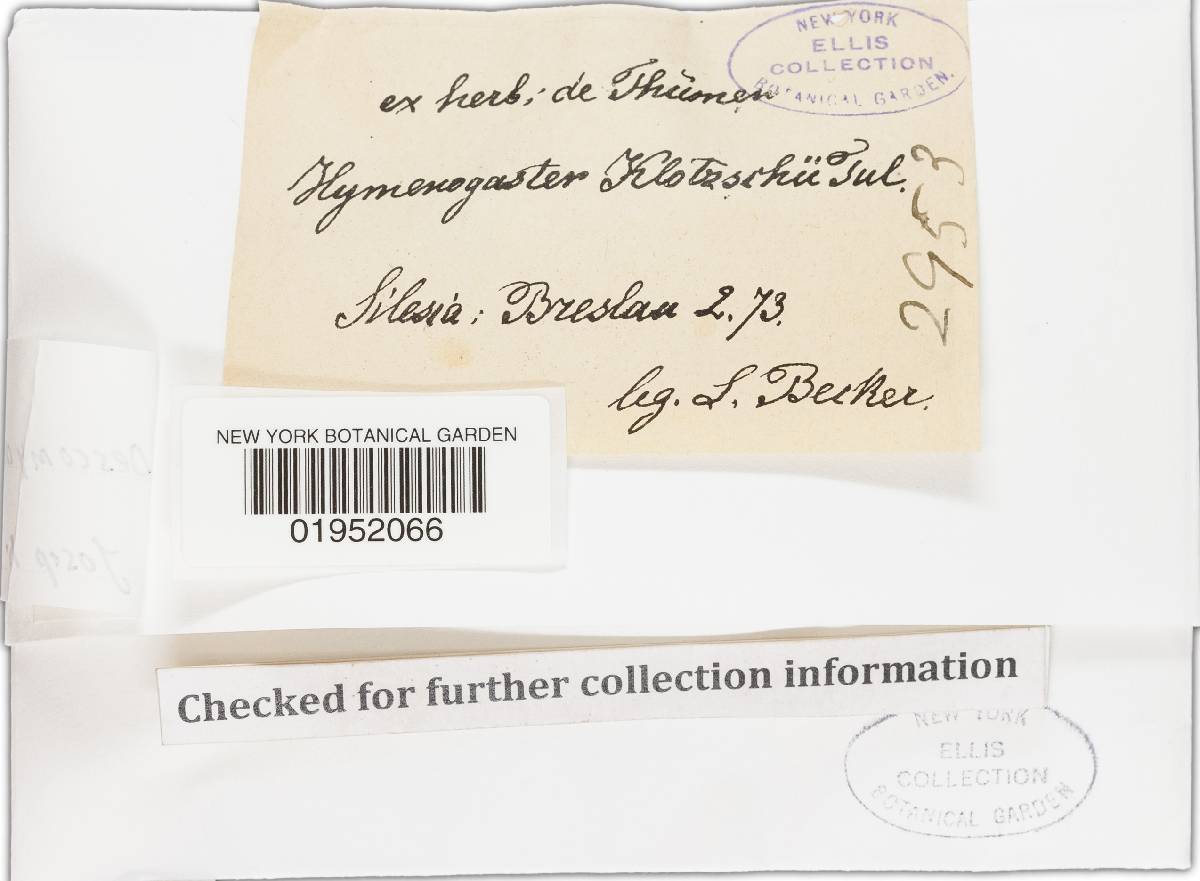 NEW YORK
ELLIS
COLLECTION
BOTANICAL GARDEN.
ex herb. de Thümen
Hymenogaster Klotzschii Tul.
2953
Silesia: Breslau 2.73.
leg. L. Becker.
NEW YORK BOTANICAL GARDEN
01952066
Checked for further collection information
NEW YORK
ELLIS
COLLECTION
BOTANICAL GARDEN